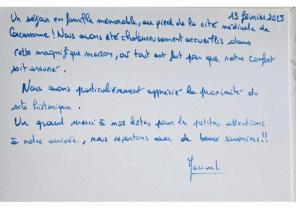 13 février 2013
Un séjour en famille mémorable, au pied de la cité médiévale de
Carcassonne ! Nous avons été chaleureusement accueillis dans
cette magnifique maison, où tout est fait pour que notre confort
soit assuré.
Nous avons particulièrement apprécié la proximité du
site historique.
Un grand merci à nos hôtes pour les petites attentions
à notre arrivée, nous repartons avec de beaux souvenirs !!